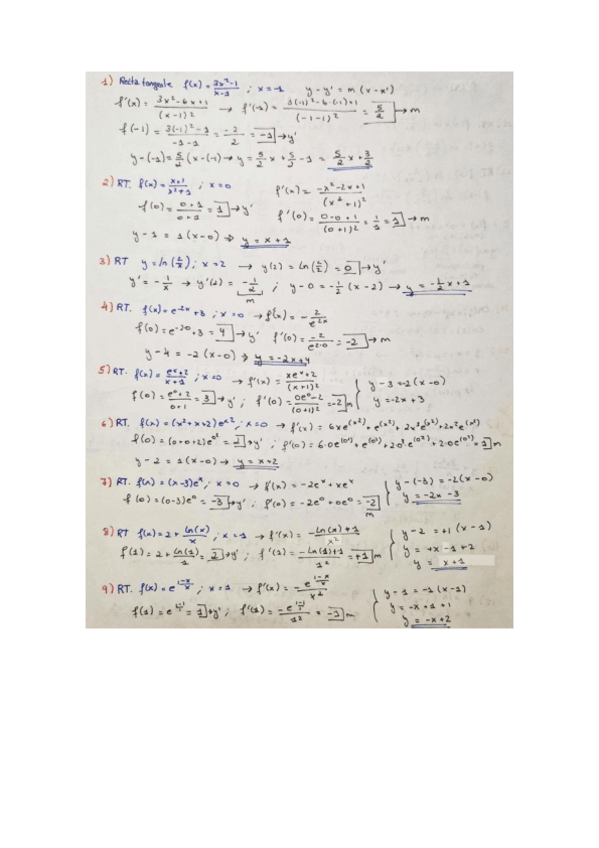 1) Recta tangente f(x) = (3x²-1)/(x-1) ; x=-1 y-y' = m (x-x')
f'(x) = (3x²-6x+1)/(x-1)² → f'(-1) = (3(-1)²-6·(-1)+1)/(-1-1)² = 5/2 → m
f(-1) = (3(-1)²-1)/(-1-1) = -2/2 = -1 → y'
y-(-1) = 5/2 (x-(-1)) → y = 5/2 x + 5/2 - 1 = 5/2 x + 3/2
2) RT. f(x) = (x+1)/(x²+1) ; x=0 f'(x) = (-x²-2x+1)/(x²+1)²
f(0) = (0+1)/(0+1) = 1 → y' f'(0) = (0-0+1)/(0+1)² = 1/1 = 1 → m
y-1 = 1(x-0) ⇒ y = x+1
3) RT y = ln(2/x) ; x=2 → y(2) = ln(2/2) = 0 → y'
y' = -1/x → y'(2) = -1/2 m ; y-0 = -1/2 (x-2) → y = -1/2 x+1
4) RT. f(x) = e^-2x + 3 ; x=0 → f'(x) = -2/e^2x
f(0) = e^-2·0 + 3 = 4 → y' f'(0) = -2/e^2·0 = -2 → m
y-4 = -2(x-0) ⇒ y = -2x+4
5) RT. f(x) = (e^x+2)/(x+1) ; x=0 → f'(x) = (xe^x+2)/(x+1)² { y-3 = -2(x-0)
f(0) = (e^0+2)/(0+1) = 3 → y' ; f'(0) = (0e^0-2)/(0+1)² = -2 m y = -2x+3
6) RT. f(x) = (x²+x+2)e^x² ; x=0 → f'(x) = 6xe^(x²) + e^(x²) + 2x³e^(x²) + 2x²e^(x²)
f(0) = (0+0+2)e^0² = 2 → y' ; f'(0) = 6·0e^(0²) + e^(0²) + 20³·e^(0²) + 2·0e^(0²) = 1 m
y-2 = 1(x-0) → y = x+2
7) RT. f(x) = (x-3)e^x ; x=0 → f'(x) = -2e^x + xe^x { y-(-3) = -2(x-0)
f(0) = (0-3)e^0 = -3 → y' ; f'(x) = -2e^0 + 0e^0 = -2 m y = -2x-3
8) RT f(x) = 2 + ln(x)/x ; x=1 → f'(x) = (-ln(x)+1)/x² { y-2 = +1 (x-1)
f(1) = 2 + ln(1)/1 = 2 → y' ; f'(1) = (-ln(1)+1)/1² = +1 m y = +x-1+2
y = x+1
9) RT. f(x) = e^(1-x/x) ; x=1 → f'(x) = -e^(1-x/x)/x² { y-1 = -1(x-1)
f(1) = e^(1-1/1) = 1 → y' ; f'(1) = -e^(1-1/1)/1² = -1 m y = -x+1+1
y = -x+2